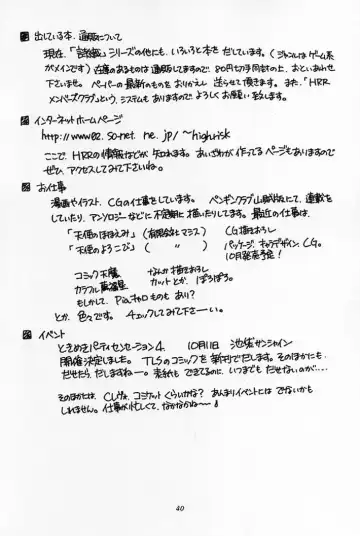 出している本、通販について
現在、「詩織」シリーズの他にも、いろいろと本をだしています。(ジャンルはゲーム系
がメインです) 在庫のあるものは通販してますので、80円切手同封の上、おといあわせ
下さいませ。ペーパーの最新のものをおりかえし送らせて頂きます。また、「HRR
メンバーズクラブ」という、システムもありますのでよろしくお願い致します。
インターネットホームページ
http://www02.so-net.ne.jp/~highrisk
ここで、HRRの情報などが知れます。あいざわが作ってるページもありますので
ぜひ、アクセスしてみて下さいね。
お仕事
漫画やイラスト、CGの仕事をしています。ペンギンクラブ山賊版にて、連載を
していたり、アンソロジーなどに不定期に描いたりしてます。最近の仕事は、
「天使のほほえみ」(有限会社マシス) CG描きおろし
「天使のよろこび」( 〃 ) パッケージ、キャラデザイン、CG。
10月発売予定!
コミック天魔 なんか描きおろし
カラフル萬福星 カットとか、ぽろぽろ。
もしかして、Piaキャロものもあり?
とか、色々です。チェックしてみて下さーい。
イベント
ときめきパーティセンセーション4 10月11日 池袋サンシャイン
開催決定しました。TLSのコミックを新刊でだします。そのほかにも、
だせたら、だしますねー。表紙もできてるのに、いつまでもだせないのが‥‥
そのほかには、Cレヴォ、コミケットくらいかな? あんまりイベントにはでないかも
しれません。仕事が忙しくて、なかなかね〜
40